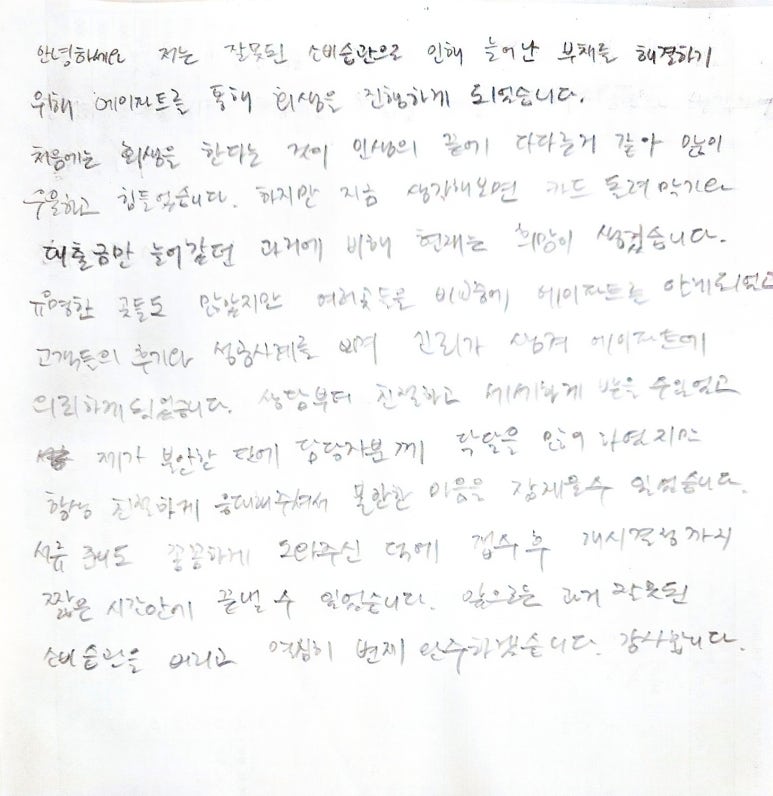 안녕하세요 저는 잘못된 소비습관으로 인해 늘어난 부채를 해결하기
위해 에이파트를 통해 회생을 진행하게 되었습니다.
처음에는 회생을 한다는 것이 인생의 끝에 다다른거 같아 많이
우울하고 힘들었습니다. 하지만 지금 생각해보면 카드 돌려막기와
대출금만 늘어갔던 과거에 비해 현재는 희망이 생겼습니다.
유명한 곳들도 많았지만 여러곳들을 비교중에 에이파트를 알게되었고
고객들의 후기와 성공사례를 보며 신뢰가 생겨 에이파트에
의뢰하게되었습니다. 상담부터 친절하고 세세하게 받을 수있었고
제가 불안한 탓에 담당자분께 닥달을 많이 하였지만
항상 친절하게 응대해주셔서 불안한 마음을 잠재울수 있었습니다.
서류 준비도 꼼꼼하게 도와주신 덕에 접수 후 개시결정까지
짧은 시간안에 끝낼 수 있었습니다. 앞으로는 과거 잘못된
소비습관을 버리고 열심히 변제 완수하겠습니다. 감사합니다.